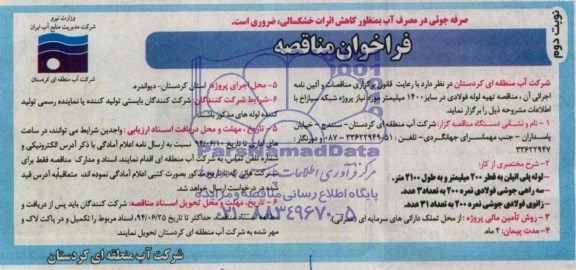 نوبت دوم
صرفه جوئی در مصرف آب بمنظور کاهش اثرات خشکسالی، ضروری است.
فراخوان مناقصه
وزارت نیرو
شرکت مدیریت منابع آب ایران
شرکت آب منطقه ای کردستان
شرکت آب منطقه ای کردستان در نظر دارد با رعایت قانون برگزاری مناقصات و آئین نامه
اجرائی آن، مناقصه تهیه لوله فولادی در سایز ۱۴۰۰ میلیمتر مورد نیاز پروژه شبکه سیازاخ با
اطلاعات مشروحه ذیل را برگزار نماید.
۱- نام و نشانی دستگاه مناقصه گزار: شرکت آب منطقه ای کردستان – سنندج – خیابان
پاسداران – جنب مهمانسرای جهانگردی – تلفن: ۵۱-۳۳۶۲۲۹۴۹-۰۸۷ دورنگار
۳۳۶۲۲۹۴۷
۲- شرح مختصری از کار:
لوله پلی اتیلن به قطر ۲۰۰ میلیمتر و به طول ۲۱۰۰ متر.
سه راهی جوشی فولادی نمره ۲۰۰ به تعداد ۳ عدد.
زانوی فولادی جوشی نمره ۲۰۰ به تعداد ۳۱ عدد.
۳- روش تأمین مالی پروژه: از محل تملک دارائی های سرمایه ای (عمرانی).
۴- مدت پیمان: ۲ ماه.
۵- محل اجرای پروژه: استان کردستان- دیواندره.
۶- شرایط شرکت کنندگان: شرکت کنندگان بایستی تولید کننده یا نماینده رسمی تولید
کننده لوله های مذکور باشند.
۵- تاریخ، مهلت و محل دریافت اسناد ارزیابی: واجدین شرایط می توانند، در ساعت
های اداری تا تاریخ ۹۴/۰۶/۱۰ نسبت به ارسال نامه اعلام آمادگی با ذکر آدرس الکترونیکی و
شماره تلفن تماس، به شرکت آب منطقه ای اقدام نمایند. اسناد و مدارک مناقصه فقط برای
شرکت هائی که تا تاریخ مذکور بصورت کتبی اعلام آمادگی نموده اند، متعاقباً به آدرس قید
شده در درخواست ارسال خواهد شد.
۶- تاریخ، مهلت و محل تحویل اسناد مناقصه: شرکت کنندگان باید پس از دریافت و
حداکثر تا تاریخ ۹۴/۰۶/۲۵، اسناد مربوط را تکمیل و در پاکت لاک و
مهر شده به شرکت آب منطقه ای کردستان تحویل نمایند.
شرکت آب منطقه ای کردستان
ParsNamadData
مرکز فرآوری اطلاعات
پایگاه اطلاع رسانی مناقصه و مزایده
۰۲۱-۸۸۳۴۹۶۷۰-۵